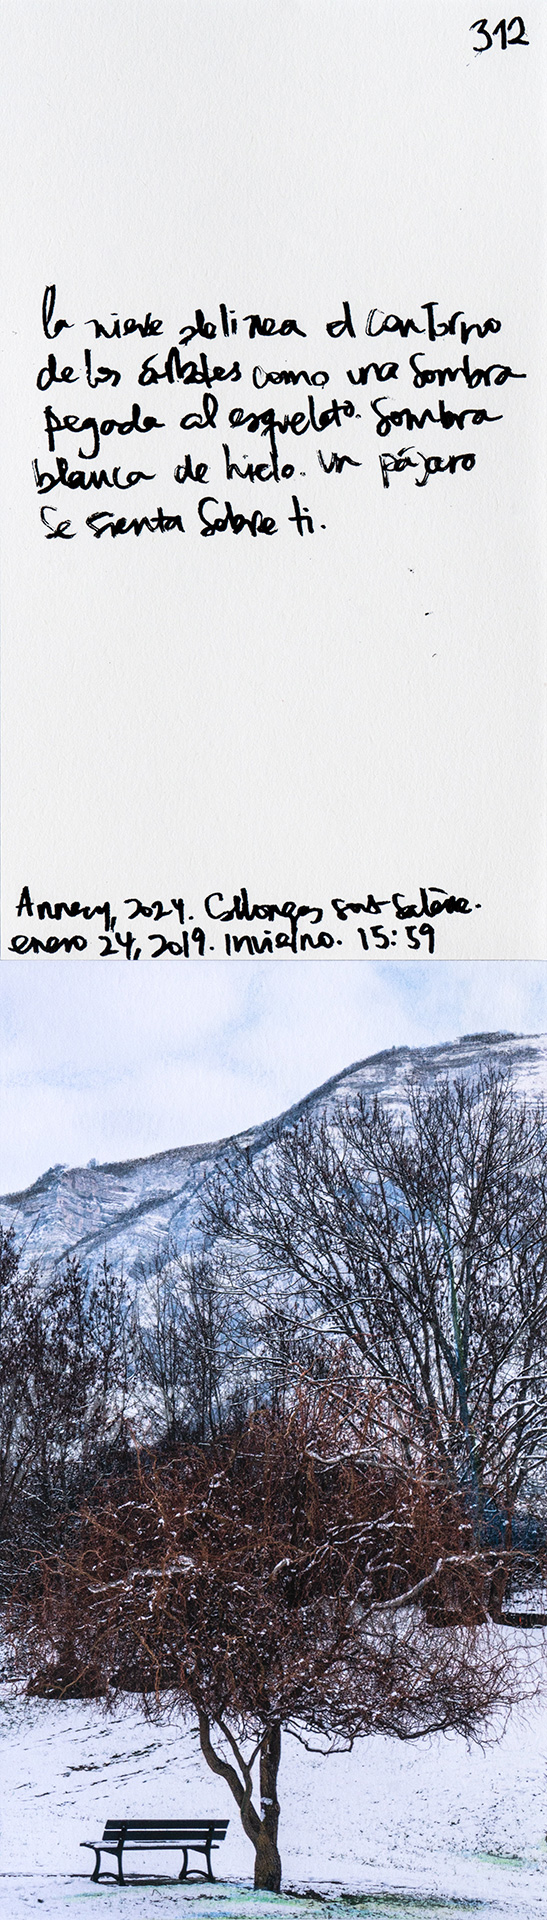 312
la nieve delinea el contorno
de los árboles como una sombra
pegada al esqueleto. Sombra
blanca de hielo. un pájaro
se sienta sobre ti.
Annecy, 2024. Collonges sous-Salève.
enero 24, 2019. Invierno. 15:59